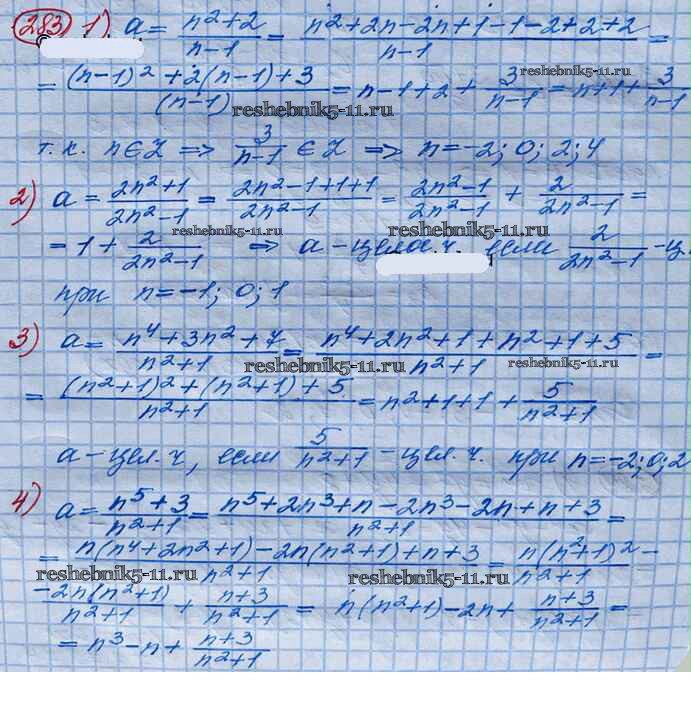 283) 1) a = \frac{n^2+2}{n-1} = \frac{n^2+2n-2n+1-1-2+2+2}{n-1} =
= \frac{(n-1)^2+2(n-1)+3}{(n-1)} = n-1+2+\frac{3}{n-1} = n+1+\frac{3}{n-1}
reshebnik5-11.ru reshebnik5-11.ru
т.к. n∈Z ⇒ \frac{3}{n-1} ∈ Z ⇒ n=-2; 0; 2; 4
2) a = \frac{2n^2+1}{2n^2-1} = \frac{2n^2-1+1+1}{2n^2-1} = \frac{2n^2-1}{2n^2-1} + \frac{2}{2n^2-1} =
reshebnik5-11.ru reshebnik5-11.ru
= 1 + \frac{2}{2n^2-1} ⇒ a - целое ч. если \frac{2}{2n^2-1} - ц.
при n=-1; 0; 1
3) a = \frac{n^4+3n^2+7}{n^2+1} = \frac{n^4+2n^2+1+n^2+1+5}{n^2+1} =
reshebnik5-11.ru reshebnik5-11.ru
= \frac{(n^2+1)^2+(n^2+1)+5}{n^2+1} = n^2+1+1+\frac{5}{n^2+1}
a - цел. ч, если \frac{5}{n^2+1} - цел. ч. при n=-2; 0; 2
4) a = \frac{n^5+3}{n^2+1} = \frac{n^5+2n^3+n-2n^3-2n+n+3}{n^2+1} =
= \frac{n(n^4+2n^2+1)-2n(n^2+1)+n+3}{n^2+1} = \frac{n(n^2+1)^2}{n^2+1} -
reshebnik5-11.ru reshebnik5-11.ru
- \frac{2n(n^2+1)}{n^2+1} + \frac{n+3}{n^2+1} = n(n^2+1)-2n+\frac{n+3}{n^2+1} =
= n^3-n+\frac{n+3}{n^2+1}